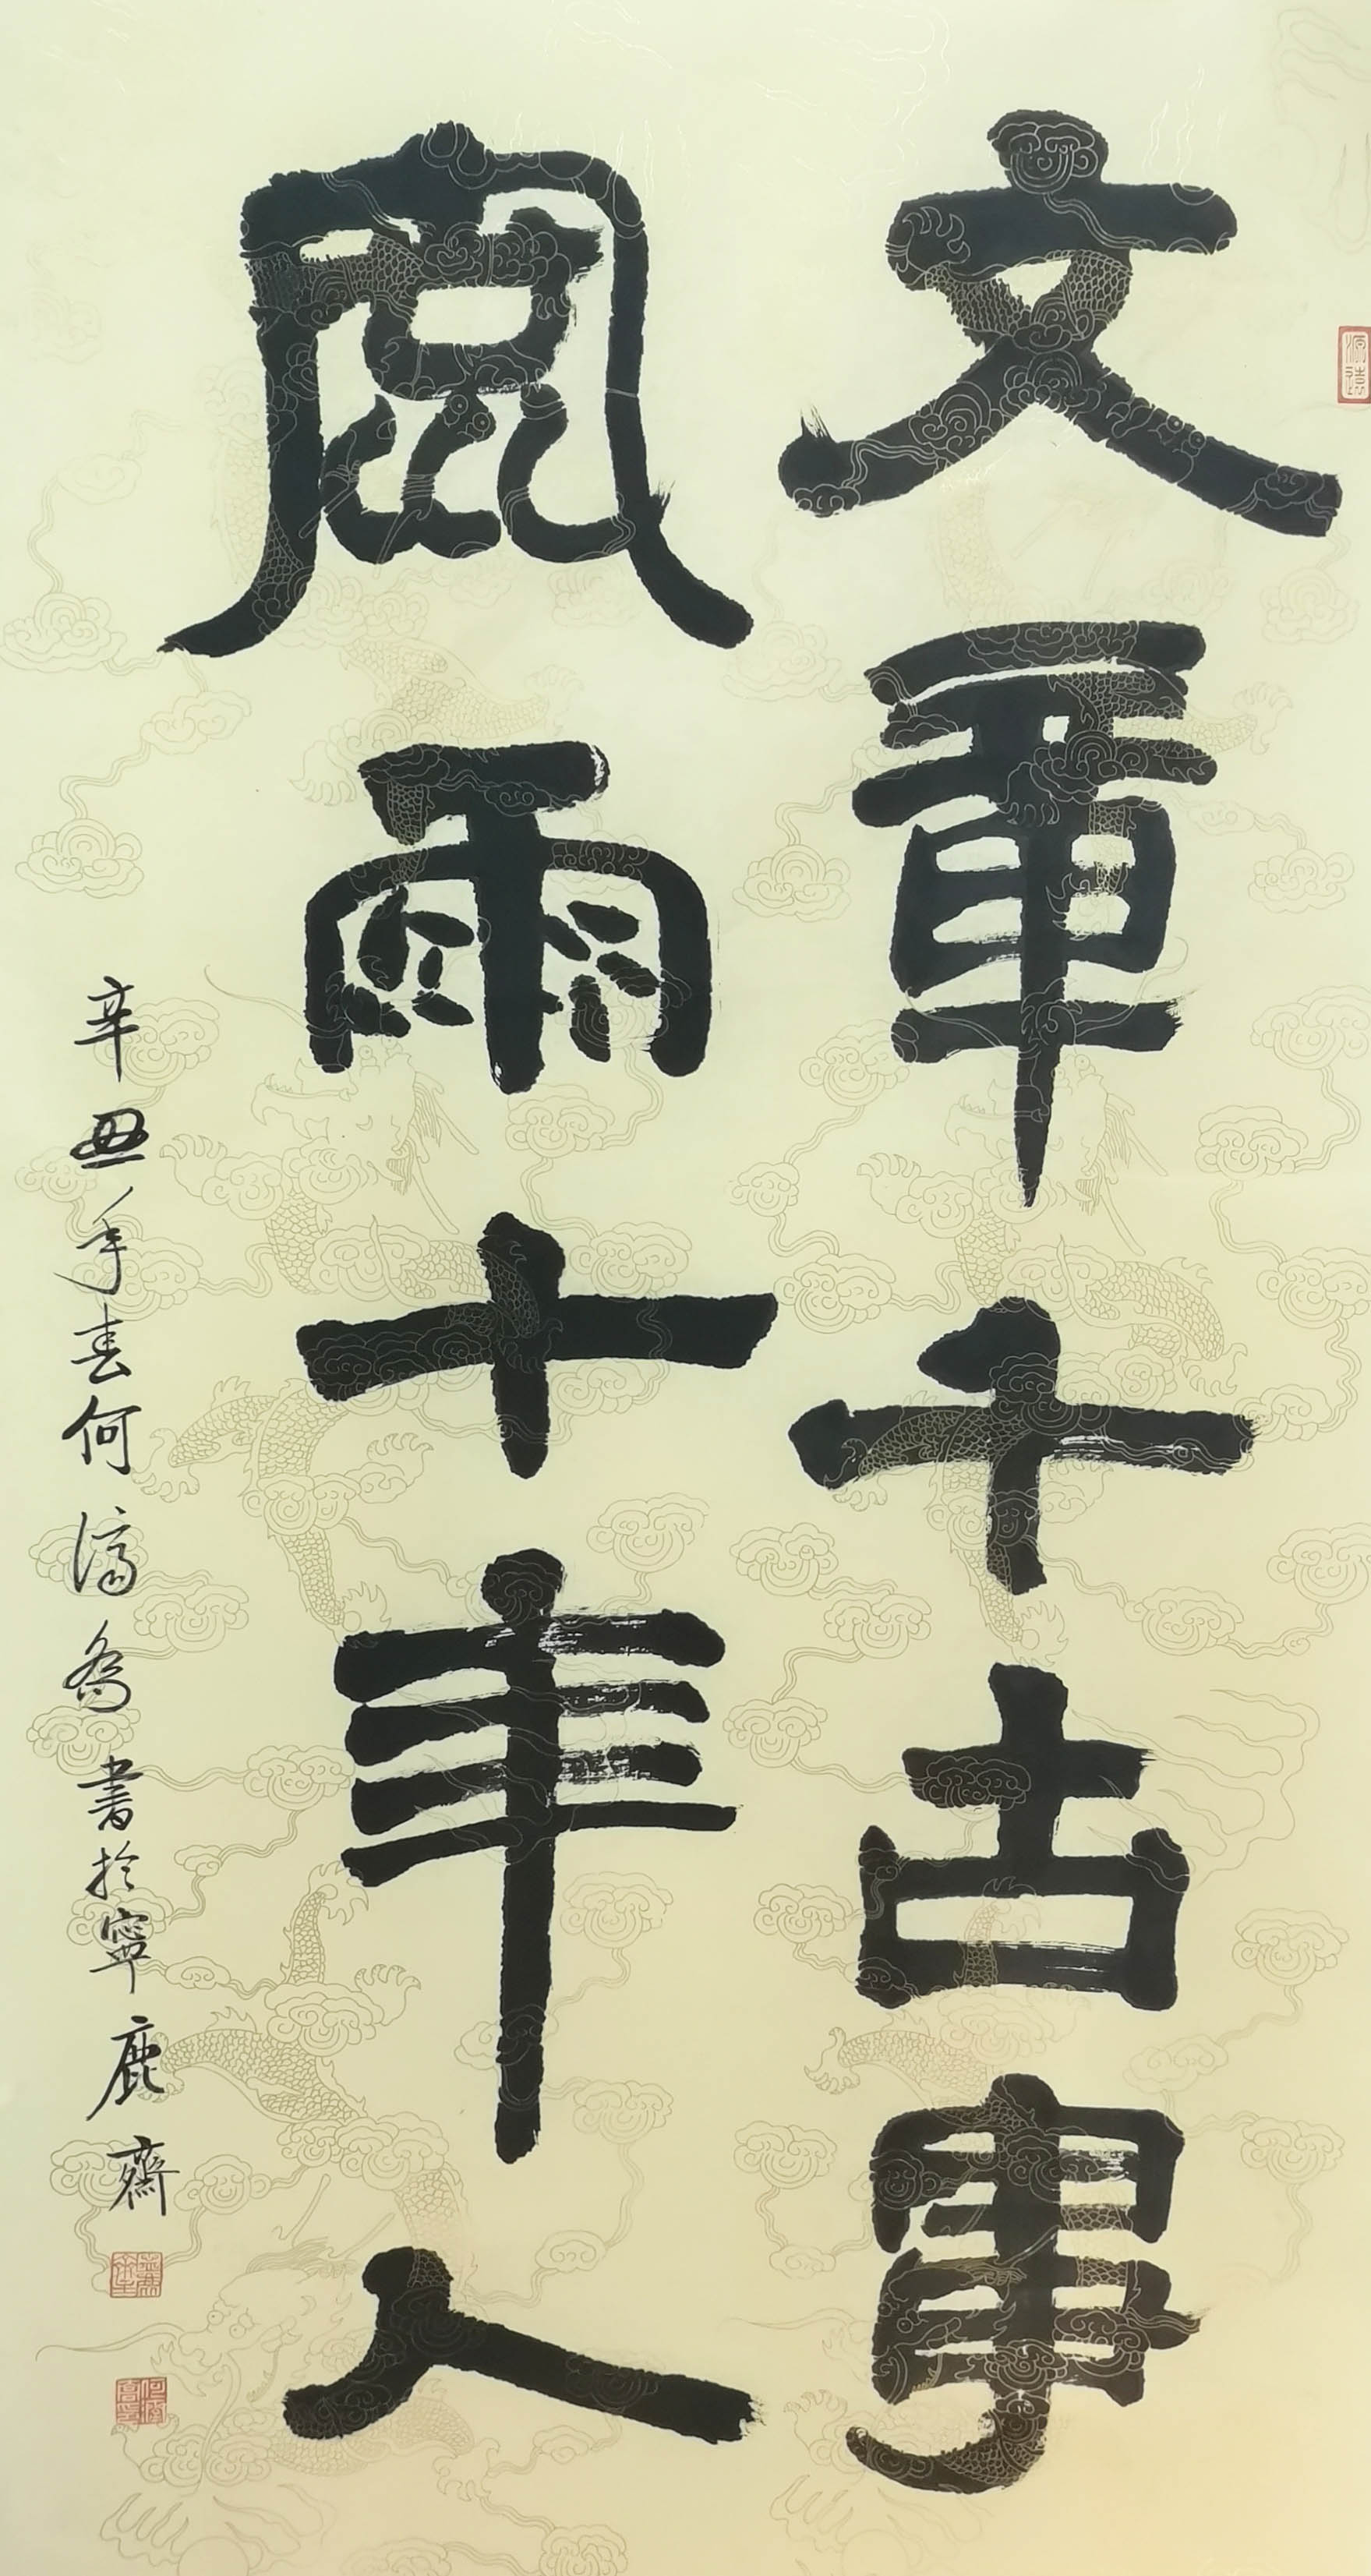 文章千古事
風雨十年人
辛丑年春何濤書於寧鹿齋